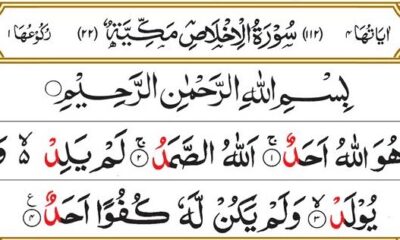 اٰیَاتُهَا ۴ (۱۱۲) سُوْرَةُ الْاِخْلَاصِ مَكِّیَّةٌ (۲۲) رُكُوْعُهَا ۱
بِسْمِ اللّٰهِ الرَّحْمٰنِ الرَّحِیْمِ
هُوَ اللّٰهُ اَحَدٌ ۚ﴿۱﴾ اَللّٰهُ الصَّمَدُ ۚ﴿۲﴾ لَمْ یَلِدْ ۙ۵ وَ
یُوْلَدْ ۙ﴿۳﴾ وَلَمْ یَكُنْ لَّهٗ كُفُوًا اَحَدٌ ﴿۴﴾ ع